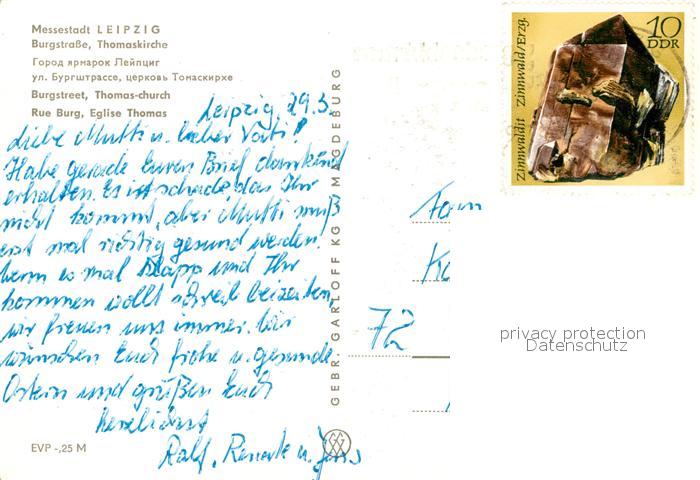 Messestadt LEIPZIG
Burgstraße, Thomaskirche
Город ярмарок Лейпциг
ул. Бургштрассе, церковь Томаскирхе
Burgstreet, Thomas-church
Rue Burg, Eglise Thomas
Leipzig 29.3.
Liebe Mutti u. lieber Vati!
Habe gerade Euren Brief dankend
erhalten. Es ist schade, das Ihr
nicht kommt, aber Mutti muß
erst mal richtig gesund werden!
Wenn es mal klappt und Ihr
kommen wollt schreib beizeiten,
wir freuen uns immer. Wir
wünschen Euch frohe u. gesunde
Ostern und grüßen Euch
herzlichst
Ralf, Renate u. Jens
EVP -,25 M
GEBR. GARLOFF KG MAGDEBURG
Zinnwaldit Zinnwald/Erzg.
10
DDR
Fam
72
privacy protection
Datenschutz